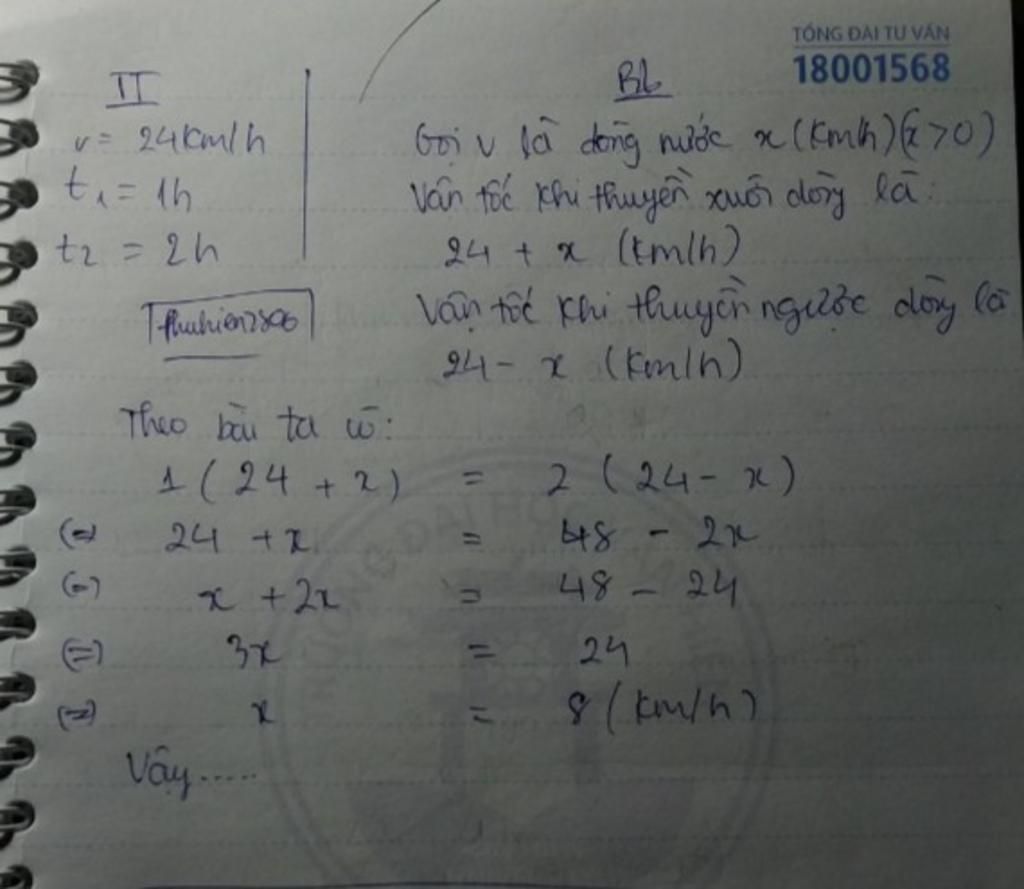 TỔNG ĐÀI TƯ VẤN
18001568
II
v = 24km/h
t1 = 1h
t2 = 2h
BL
Gọi v là dòng nước x (km/h) (x > 0)
Vận tốc khi thuyền xuôi dòng là:
24 + x (km/h)
Vận tốc khi thuyền ngược dòng là
24 - x (km/h)
Theo bài ta có:
1 ( 24 + x ) = 2 ( 24 - x )
(=) 24 + x = 48 - 2x
(=) x + 2x = 48 - 24
(=) 3x = 24
(=) x = 8 (km/h)
Vậy.....